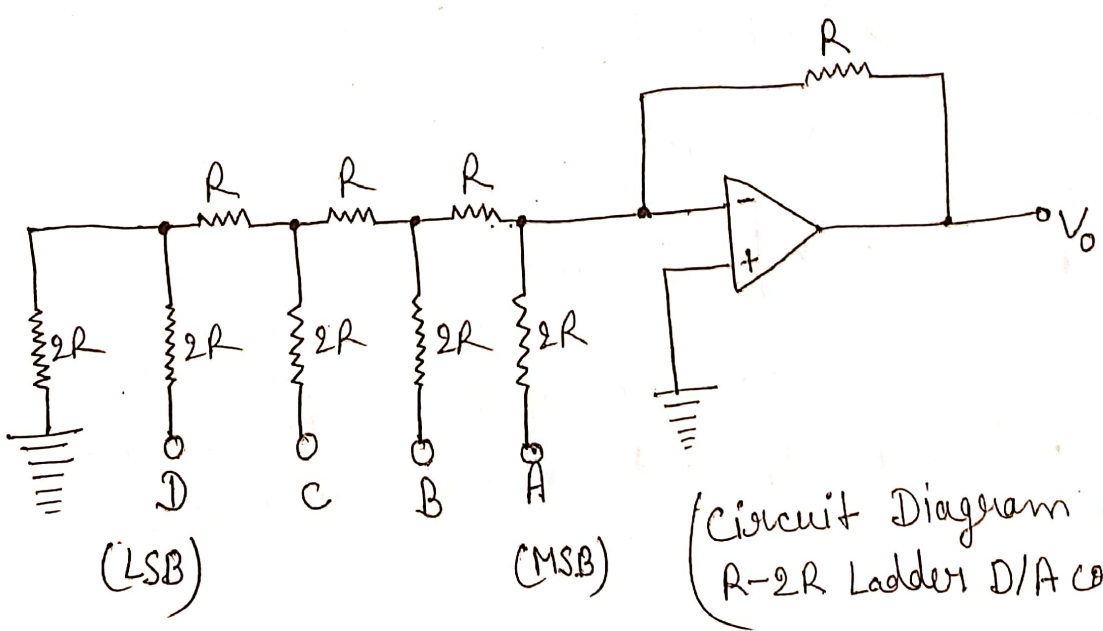 R
R R R
- V₀
+
2R 2R 2R 2R 2R
D C B A
(LSB) (MSB)
(Circuit Diagram
R-2R Ladder D/A co